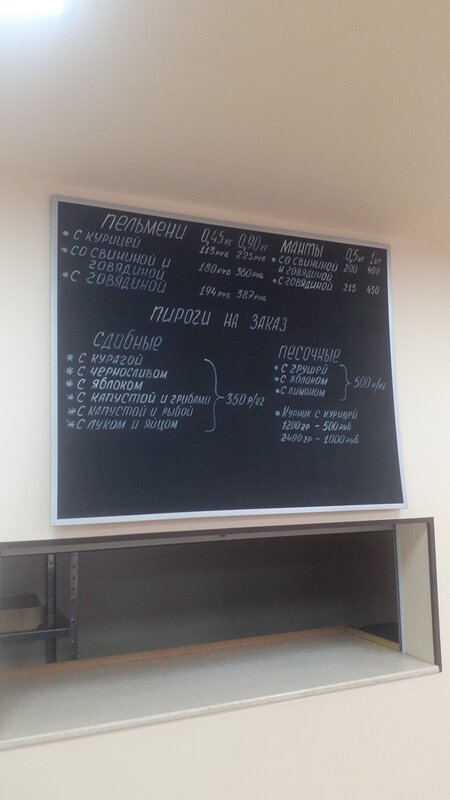 ПЕЛЬМЕНИ 0,45 кг 0,90 кг
* С КУРИЦЕЙ 113 руб 225 руб
* СО СВИНИНОЙ И
ГОВЯДИНОЙ 180 руб 360 руб
* С ГОВЯДИНОЙ
194 руб 387 руб
МАНТЫ 0,5 кг 1 кг
* СО СВИНИНОЙ 200 400
И ГОВЯДИНОЙ
* С ГОВЯДИНОЙ 215 430
ПИРОГИ НА ЗАКАЗ
СДОБНЫЕ
* С КУРАГОЙ
* С ЧЕРНОСЛИВОМ
* С ЯБЛОКОМ
* С КАПУСТОЙ И ГРИБАМИ 350 р/кг
* С КАПУСТОЙ И РЫБОЙ
* С ЛУКОМ И ЯЙЦОМ
ПЕСОЧНЫЕ
* С ГРУШЕЙ
* С ЯБЛОКОМ 500 р/кг
* С ЛИМОНОМ
* Курник с курицей
1200 гр - 500 руб
2400 гр - 1000 руб